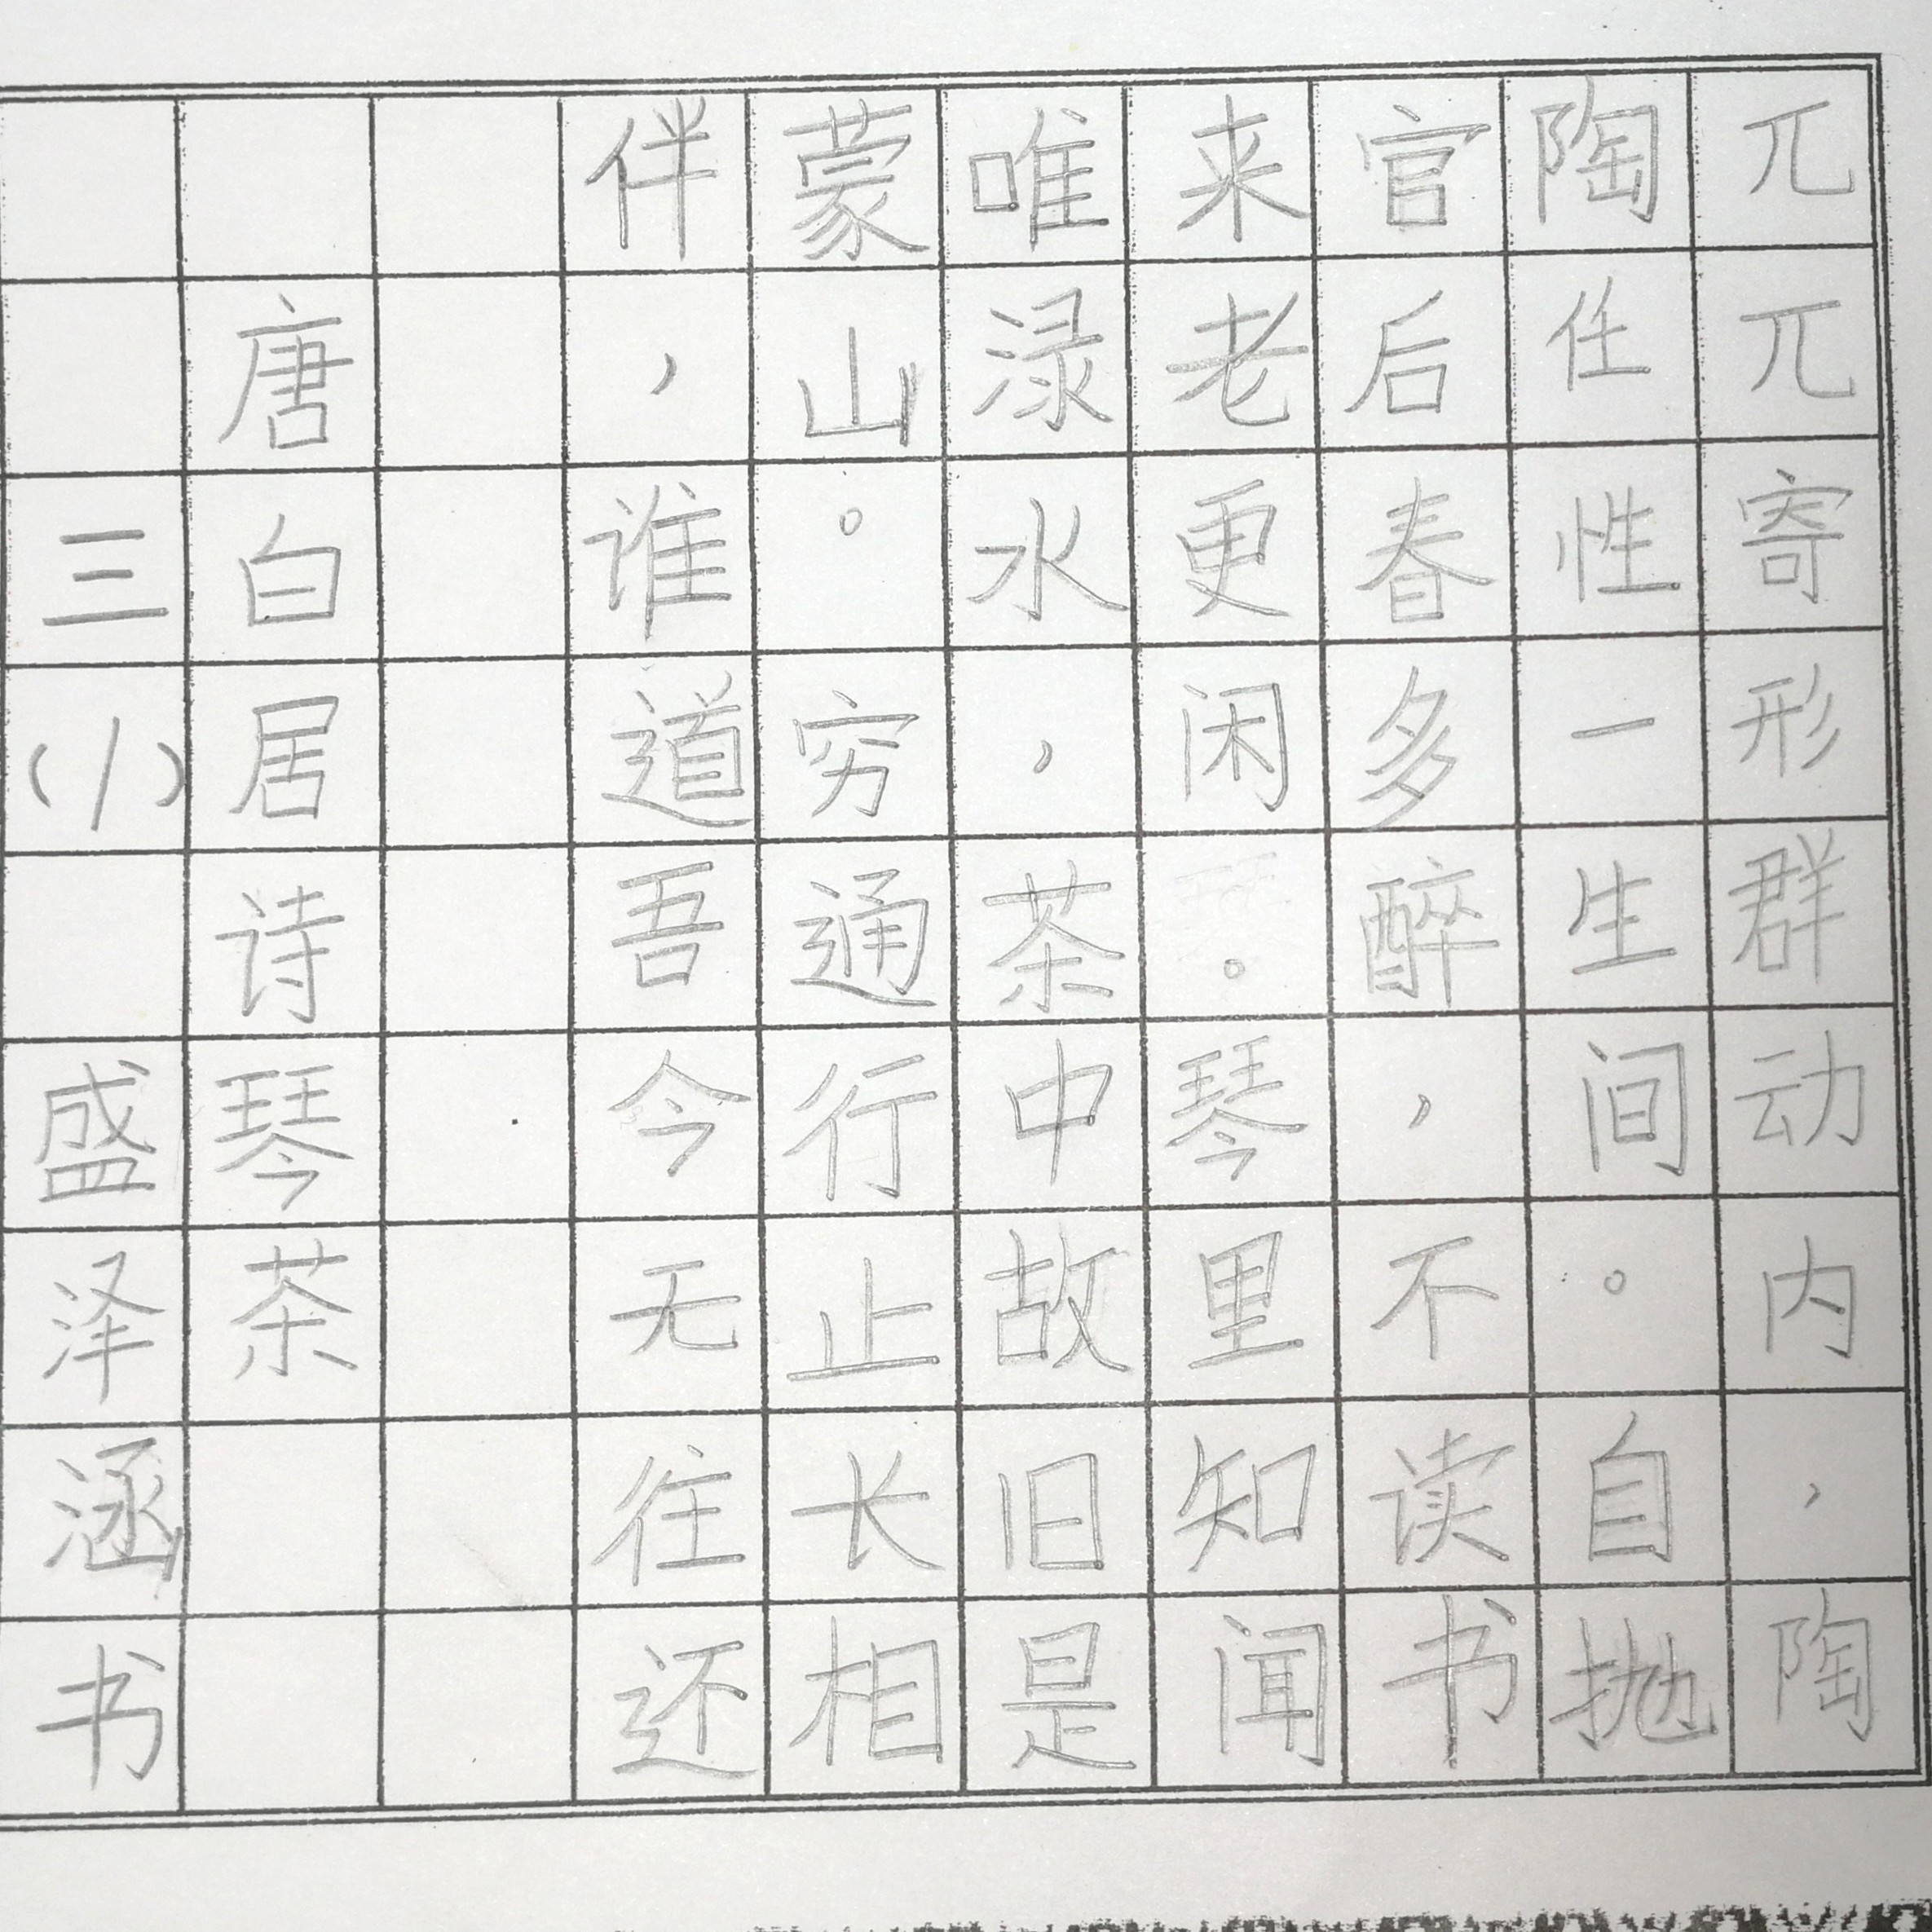 兀兀寄形群动内，陶
陶任性一生间。自抛
官后春多醉，不读书
来老更闲。琴里知闻
唯渌水，茶中故旧是
蒙山。穷通行止长相
伴，谁道吾今无往还
唐白居诗琴茶
三(1)盛泽涵书